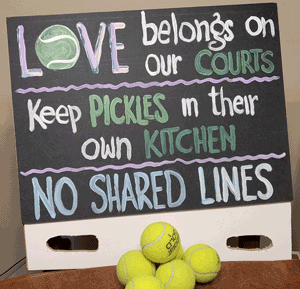 LOVE belongs on
our COURTS
Keep PICKLES in their
own KITCHEN
NO SHARED LINES